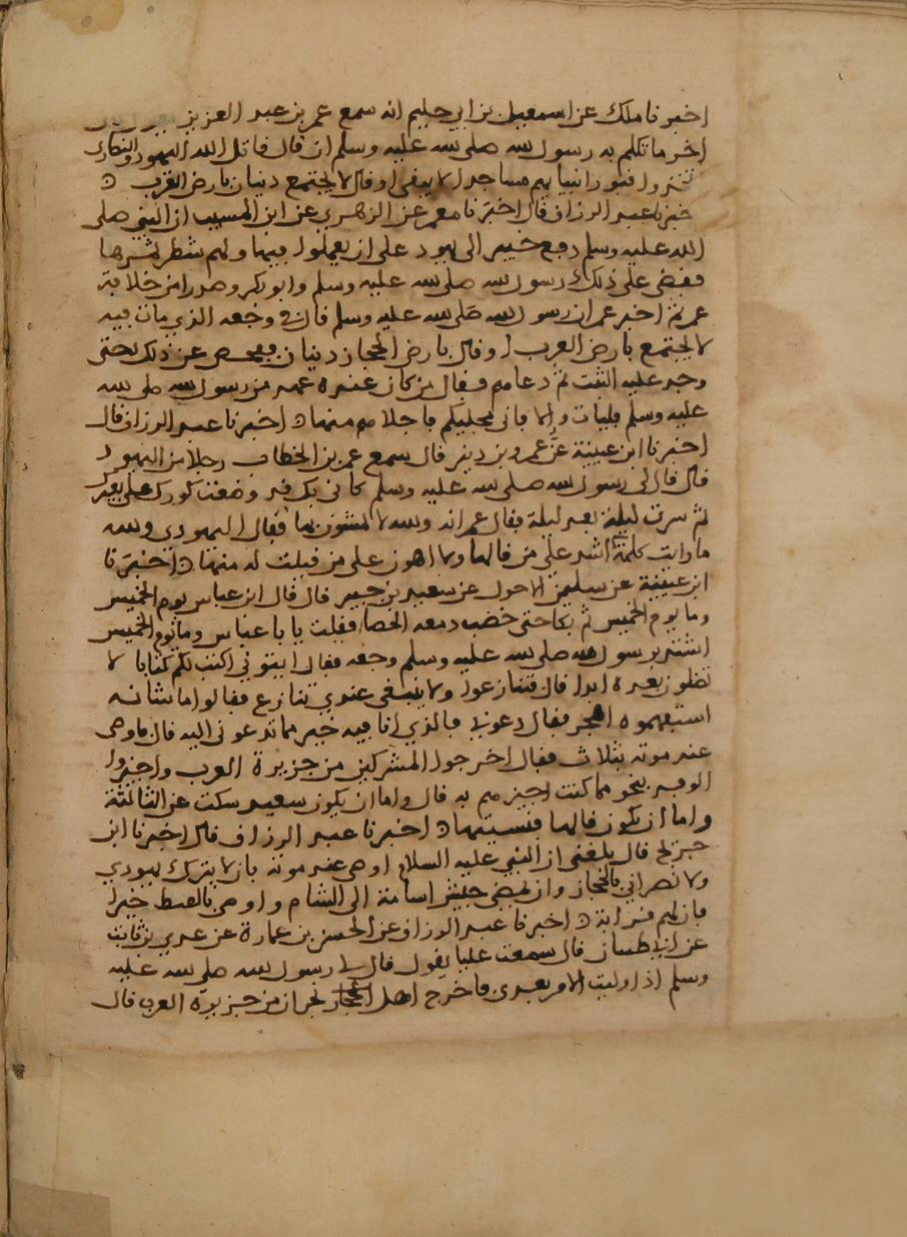 اخبرنا ملك عن اسمعيل بن ابي حكيم انه سمع عمر بن عبد العزيز يقول
اخر ما تكلم به رسول الله صلى الله عليه وسلم ان قال قاتل الله اليهود والنصارى
اتخذوا قبور انبيايهم مساجد لا يبقى او قال لا يجتمع دينان بارض العرب ه
اخبرنا عبد الرزاق قال اخبرنا معمر عن الزهري عن ابن المسيب ان النبي صلى
الله عليه وسلم دفع خيبر الى يهود على ان يعملوا فيها ولهم شطر ثمرها
فمضى على ذلك رسول الله صلى الله عليه وسلم وابو بكر وصدرا من خلافة
عمر ثم اخبر عمر ان رسول الله صلى الله عليه وسلم قال في وجعه الذي مات فيه
لا يجتمع بارض العرب او قال بارض الحجاز دينان ففحص عن ذلك حتى
وجد عليه الثبت ثم دعاهم فقال من كان عنده عهد من رسول الله صلى الله
عليه وسلم فليات والا فاني مجليكم فاجلاهم منها ه اخبرنا عبد الرزاق قال
اخبرنا ابن عيينة عن عمرو بن دينر قال سمع عمر بن الخطاب رجلا من اليهود
قال قال لي رسول الله صلى الله عليه وسلم كاني بك قد وضعت كورك على بعيرك
ثم سرت ليلة بعد ليلة فقال عمر انه والله لا تمشون بها فقال اليهودي والله
ما رايت كلمة اشد على من قالها ولا اهون على من قيلت له منها ه اخبرنا
ابن عيينة عن سليمن الاحول عن سعيد بن جبير قال قال ابن عباس يوم الخميس
وما يوم الخميس ثم بكا حتى خضب دمعه الحصا فقلت يا با عباس وما يوم الخميس
اشتد برسول الله صلى الله عليه وسلم وجعه فقال ايتوني اكتب لكم كتابا لا
تضلون بعده ابدا قال فتنازعوا ولا ينبغي عندي تنازع فقالوا ما شانه
استفهموه اهجر فقال دعوني فالذي انا فيه خير مما تدعوني اليه قال فاوصى
عند موته بثلاث فقال اخرجوا المشركين من جزيرة العرب واجيزوا
الوفد بنحو مما كنت اجيزهم به قال واما ان يكون سعيد سكت عن الثالثة
واما ان يكون قالها فنسيتها ه اخبرنا عبد الرزاق قال اخبرنا ابن
جريج قال بلغني ان النبي عليه السلام اوصى عند موته بان لا يترك يهودي
ولا نصراني بالحجاز وان يمضى جيش اسامة الى الشام واوصى بالقبط خيرا
فان لهم قرابة ه اخبرنا عبد الرزاق عن الحسن بن عمارة عن عدي بن ثابت
عن ابي ظبيان قال سمعت عليا يقول قال لي رسول الله صلى الله عليه
وسلم اذا وليت الامر بعدي فاخرج اهل نجران من جزيرة العرب قال